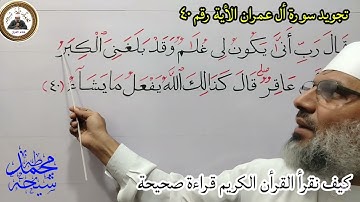 تجويد سورة أل عمران الأية رقم ٤٠
قَالَ رَبِّ أَنَّىٰ يَكُونُ لِي غُلَامٌ وَقَدْ بَلَغَنِيَ الْكِبَرُ
عَاقِرٌ ۖ قَالَ كَذَٰلِكَ اللَّهُ يَفْعَلُ مَا يَشَاءُ (٤٠)
محمد شيحه
كيف نقرأ القرأن الكريم قراءة صحيحة